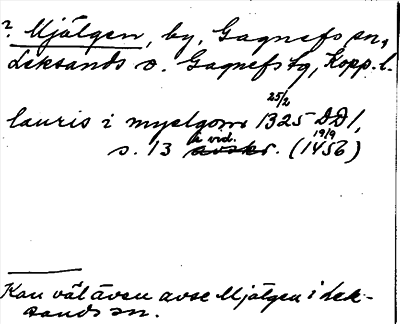 ? Mjälgen, by, Gagnefs sn,
Leksands o. Gagnefs tg, Kopp. l.
25/2
lauris i myælgom 1325 DD 1,
s. 13 avskr. (1456)
k vid. 19/9
Kan väl även avse Mjälgen i Lek-
sands sn.